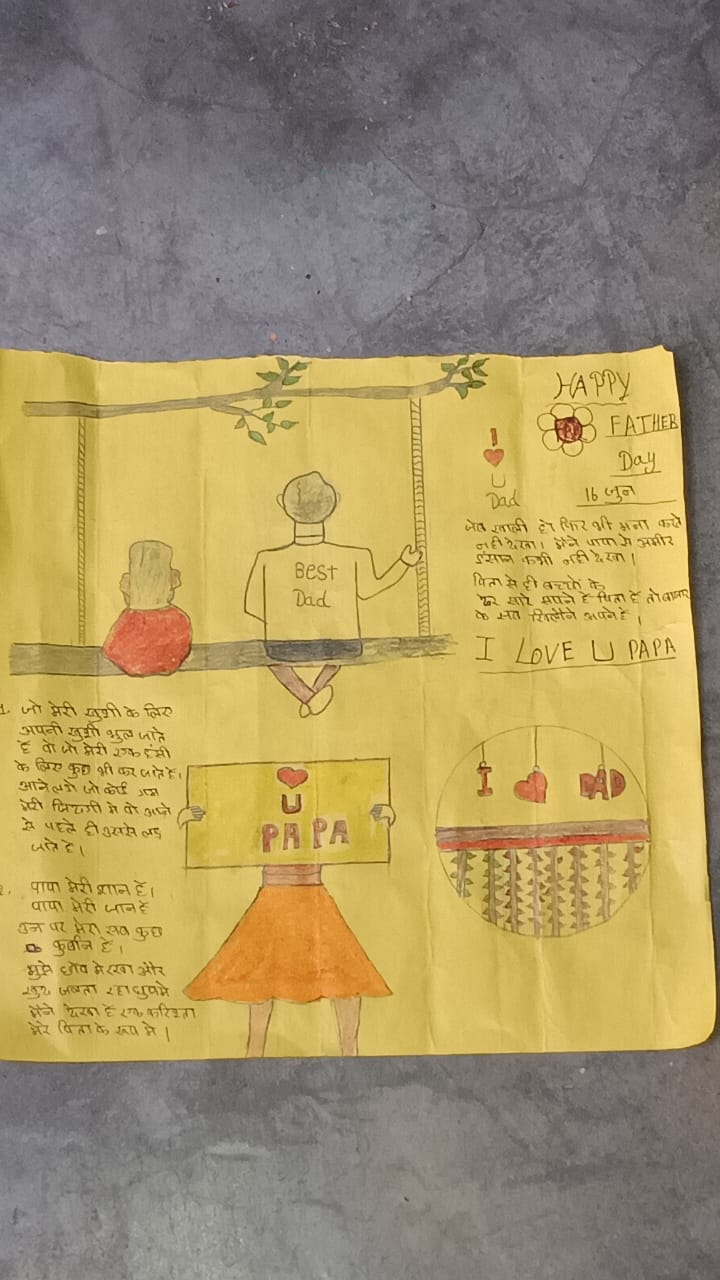 HAPPY
FATHER
Day
16 जून
I
U
Dad
जेब खाली हो फिर भी मना करते
नही देखा। मैंने पापा से अमीर
इंसान कभी नही देखा।
पिता से ही बच्चो के
ढेर सारे सपने है पिता है तो बाजार
के सब खिलौने अपने है।
I LOVE U PAPA
Best
Dad
1. जो मेरी खुशी के लिए
अपनी खुशी भुल जाते
है वो जो मेरी एक हंसी
के लिए कुछ भी कर जाते है।
आने लगे जो कोई गम
मेरी जिंदगी मे वो आने
से पहले ही उससे लड़
जाते है।
U
PAPA
I DAD
2. पापा मेरी शान है।
पापा मेरी जान है
उन पर मेरा सब कुछ
कुर्बान है।
मुझे छांव मे रखा और
खुद जलता रहा धुप मे
मैंने देखा है एक फरिश्ता
मेरे पिता के रूप मे।